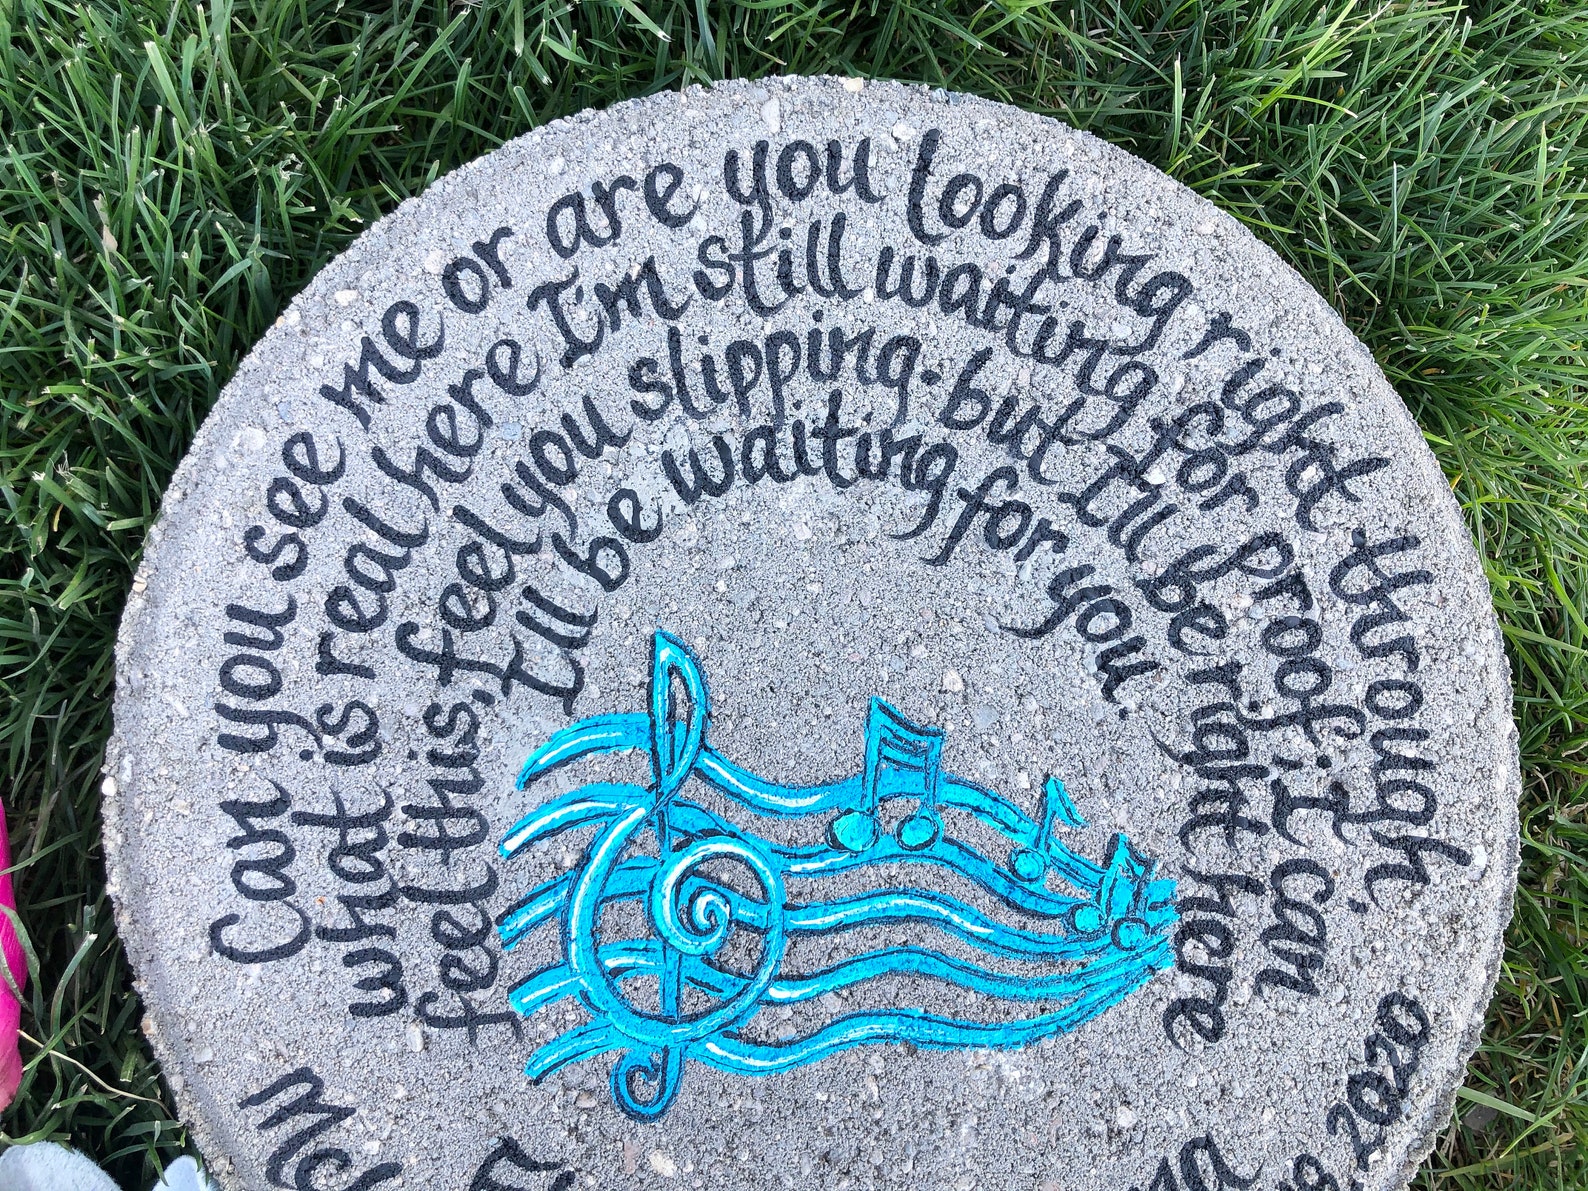 Can you see me or are you looking right through.
what is real here I'm still waiting for proof. I can
feel this, feel you slipping. but I'll be right here
I'll be waiting for you
2020